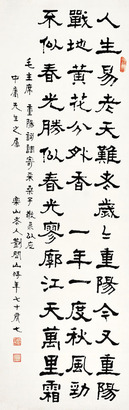 人生易老天難老歲〻重陽今又重陽
戰地黃花分外香一年一度秋風勁
不似春光勝似春光寥廓江天萬里霜
毛主席 重陽詞調寄采桑子
中庸先生之屬
老人劉 山時年七十